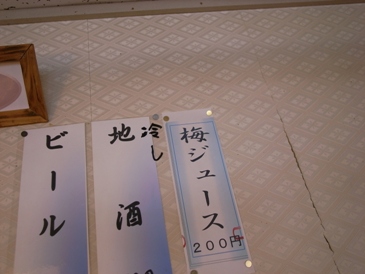 梅ジュース
200円
冷し
地酒
ビール